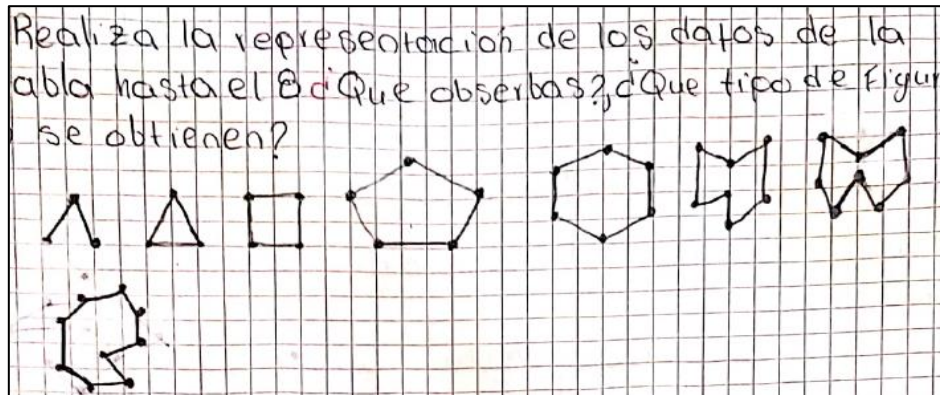 Realiza la representación de los datos de la
abla hasta el 8 ¿Que obserbas?, ¿Que tipo de Figur
se obtienen?